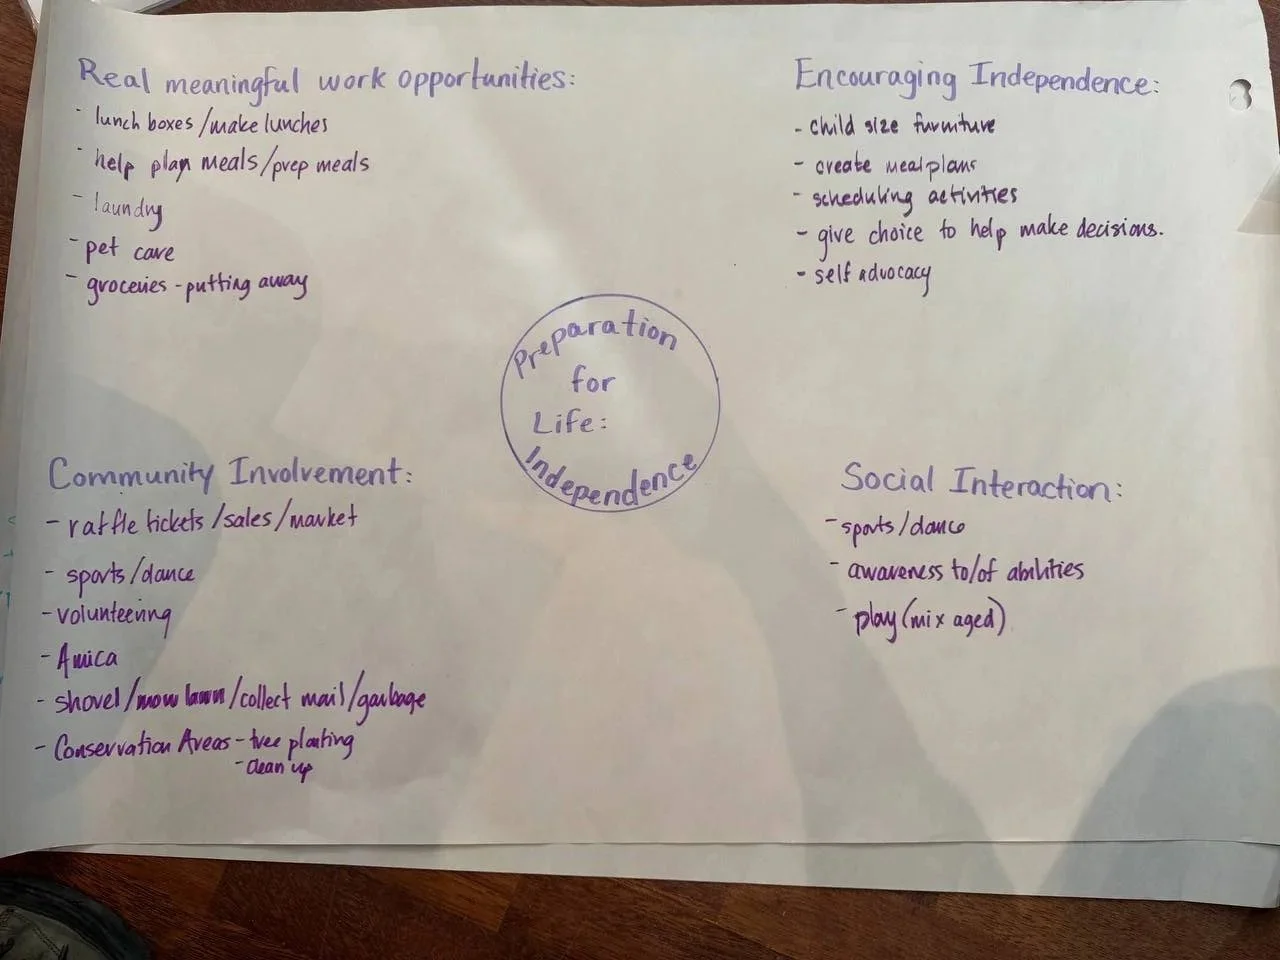 Real meaningful work opportunities:
- lunch boxes/make lunches
- help plan meals/prep meals
- laundry
- pet care
- groceries - putting away
Encouraging Independence:
- child size furniture
- create meal plans
- scheduling activities
- give choice to help make decisions.
- self advocacy
Preparation
for
Life:
Independence
Community Involvement:
- raffle tickets/sales/market
- sports/dance
- volunteering
- Amica
- shovel/mow lawn/collect mail/garbage
- Conservation Areas - tree planting
- clean up
Social Interaction:
- sports/dance
- awareness to/of abilities
- play (mix aged)